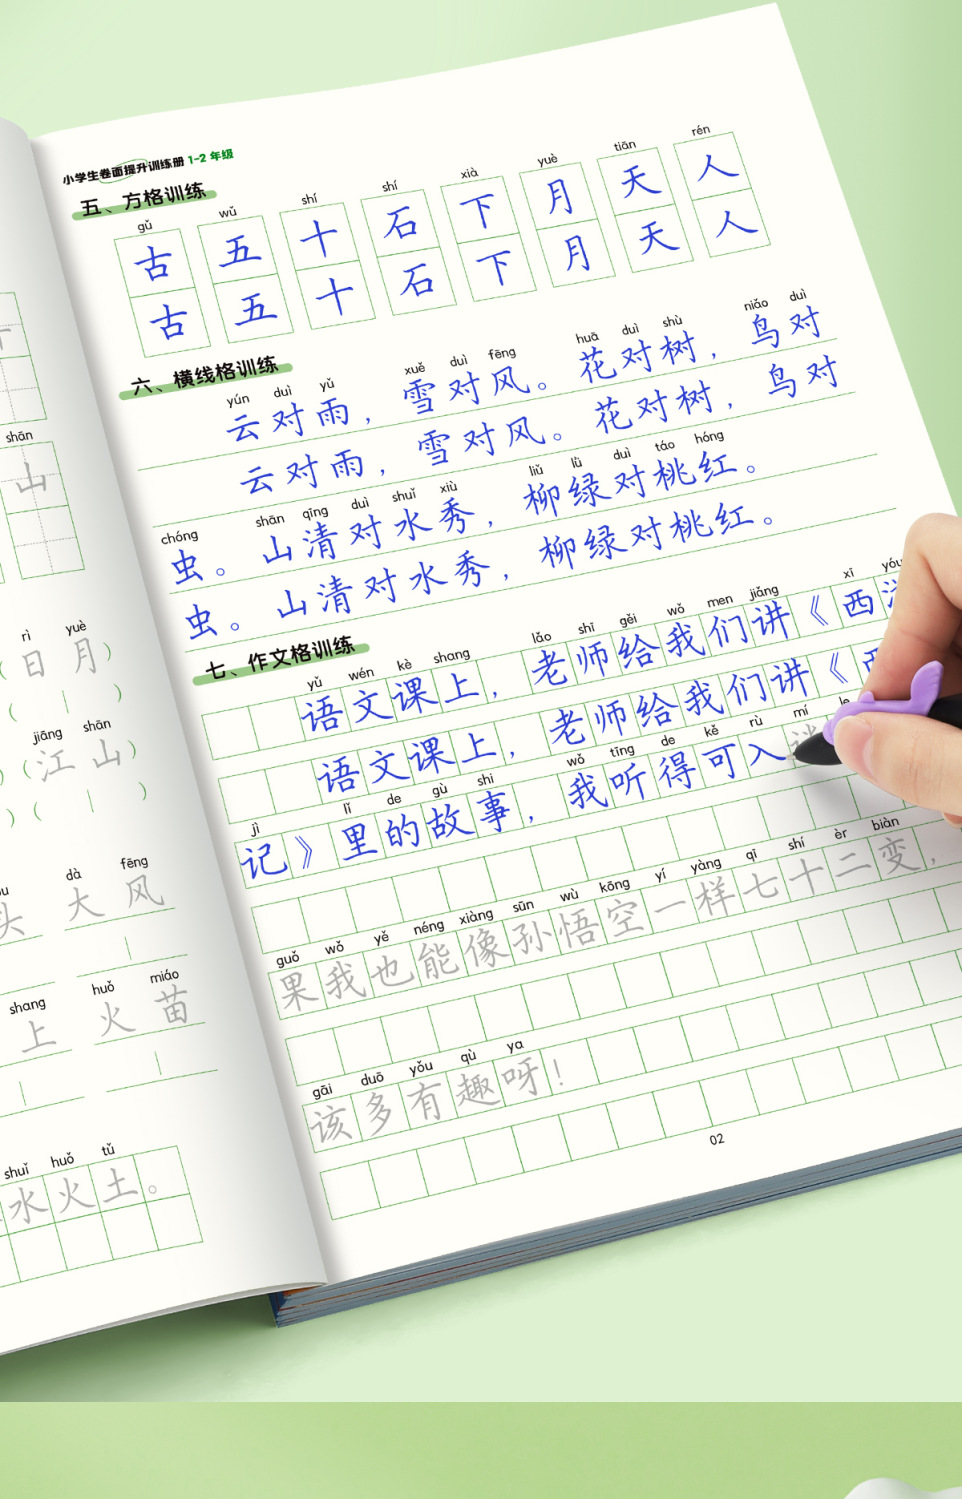 小学生卷面提升训练册 1-2 年级
五、方格训练
gǔ wǔ shí shí xià yuè tiān rén
古 五 十 石 下 月 天 人
古 五 十 石 下 月 天 人
六、横线格训练
yún duì yǔ xuě duì fēng huā duì shù niǎo duì
云对雨，雪对风。花对树，鸟对
云对雨，雪对风。花对树，鸟对
chóng shān qīng duì shuǐ xiù liǔ lǜ duì táo hóng
虫。山清对水秀，柳绿对桃红。
虫。山清对水秀，柳绿对桃红。
七、作文格训练
yǔ wén kè shang lǎo shī gěi wǒ men jiǎng xī yóu
语文课上，老师给我们讲《西
语文课上，老师给我们讲《
jì lǐ de gù shi wǒ tīng de kě rù mí le
记》里的故事，我听得可入
guǒ wǒ yě néng xiàng sūn wù kōng yí yàng qī shí èr biàn
果我也能像孙悟空一样七十二变，
gāi duō yǒu qù ya
该多有趣呀！
02
shān
山
rì yuè
（日 月）
jiāng shān
（江 山）
dà fēng
头 大 风
shang huǒ miáo
上 火 苗
shuǐ huǒ tǔ
水火土。